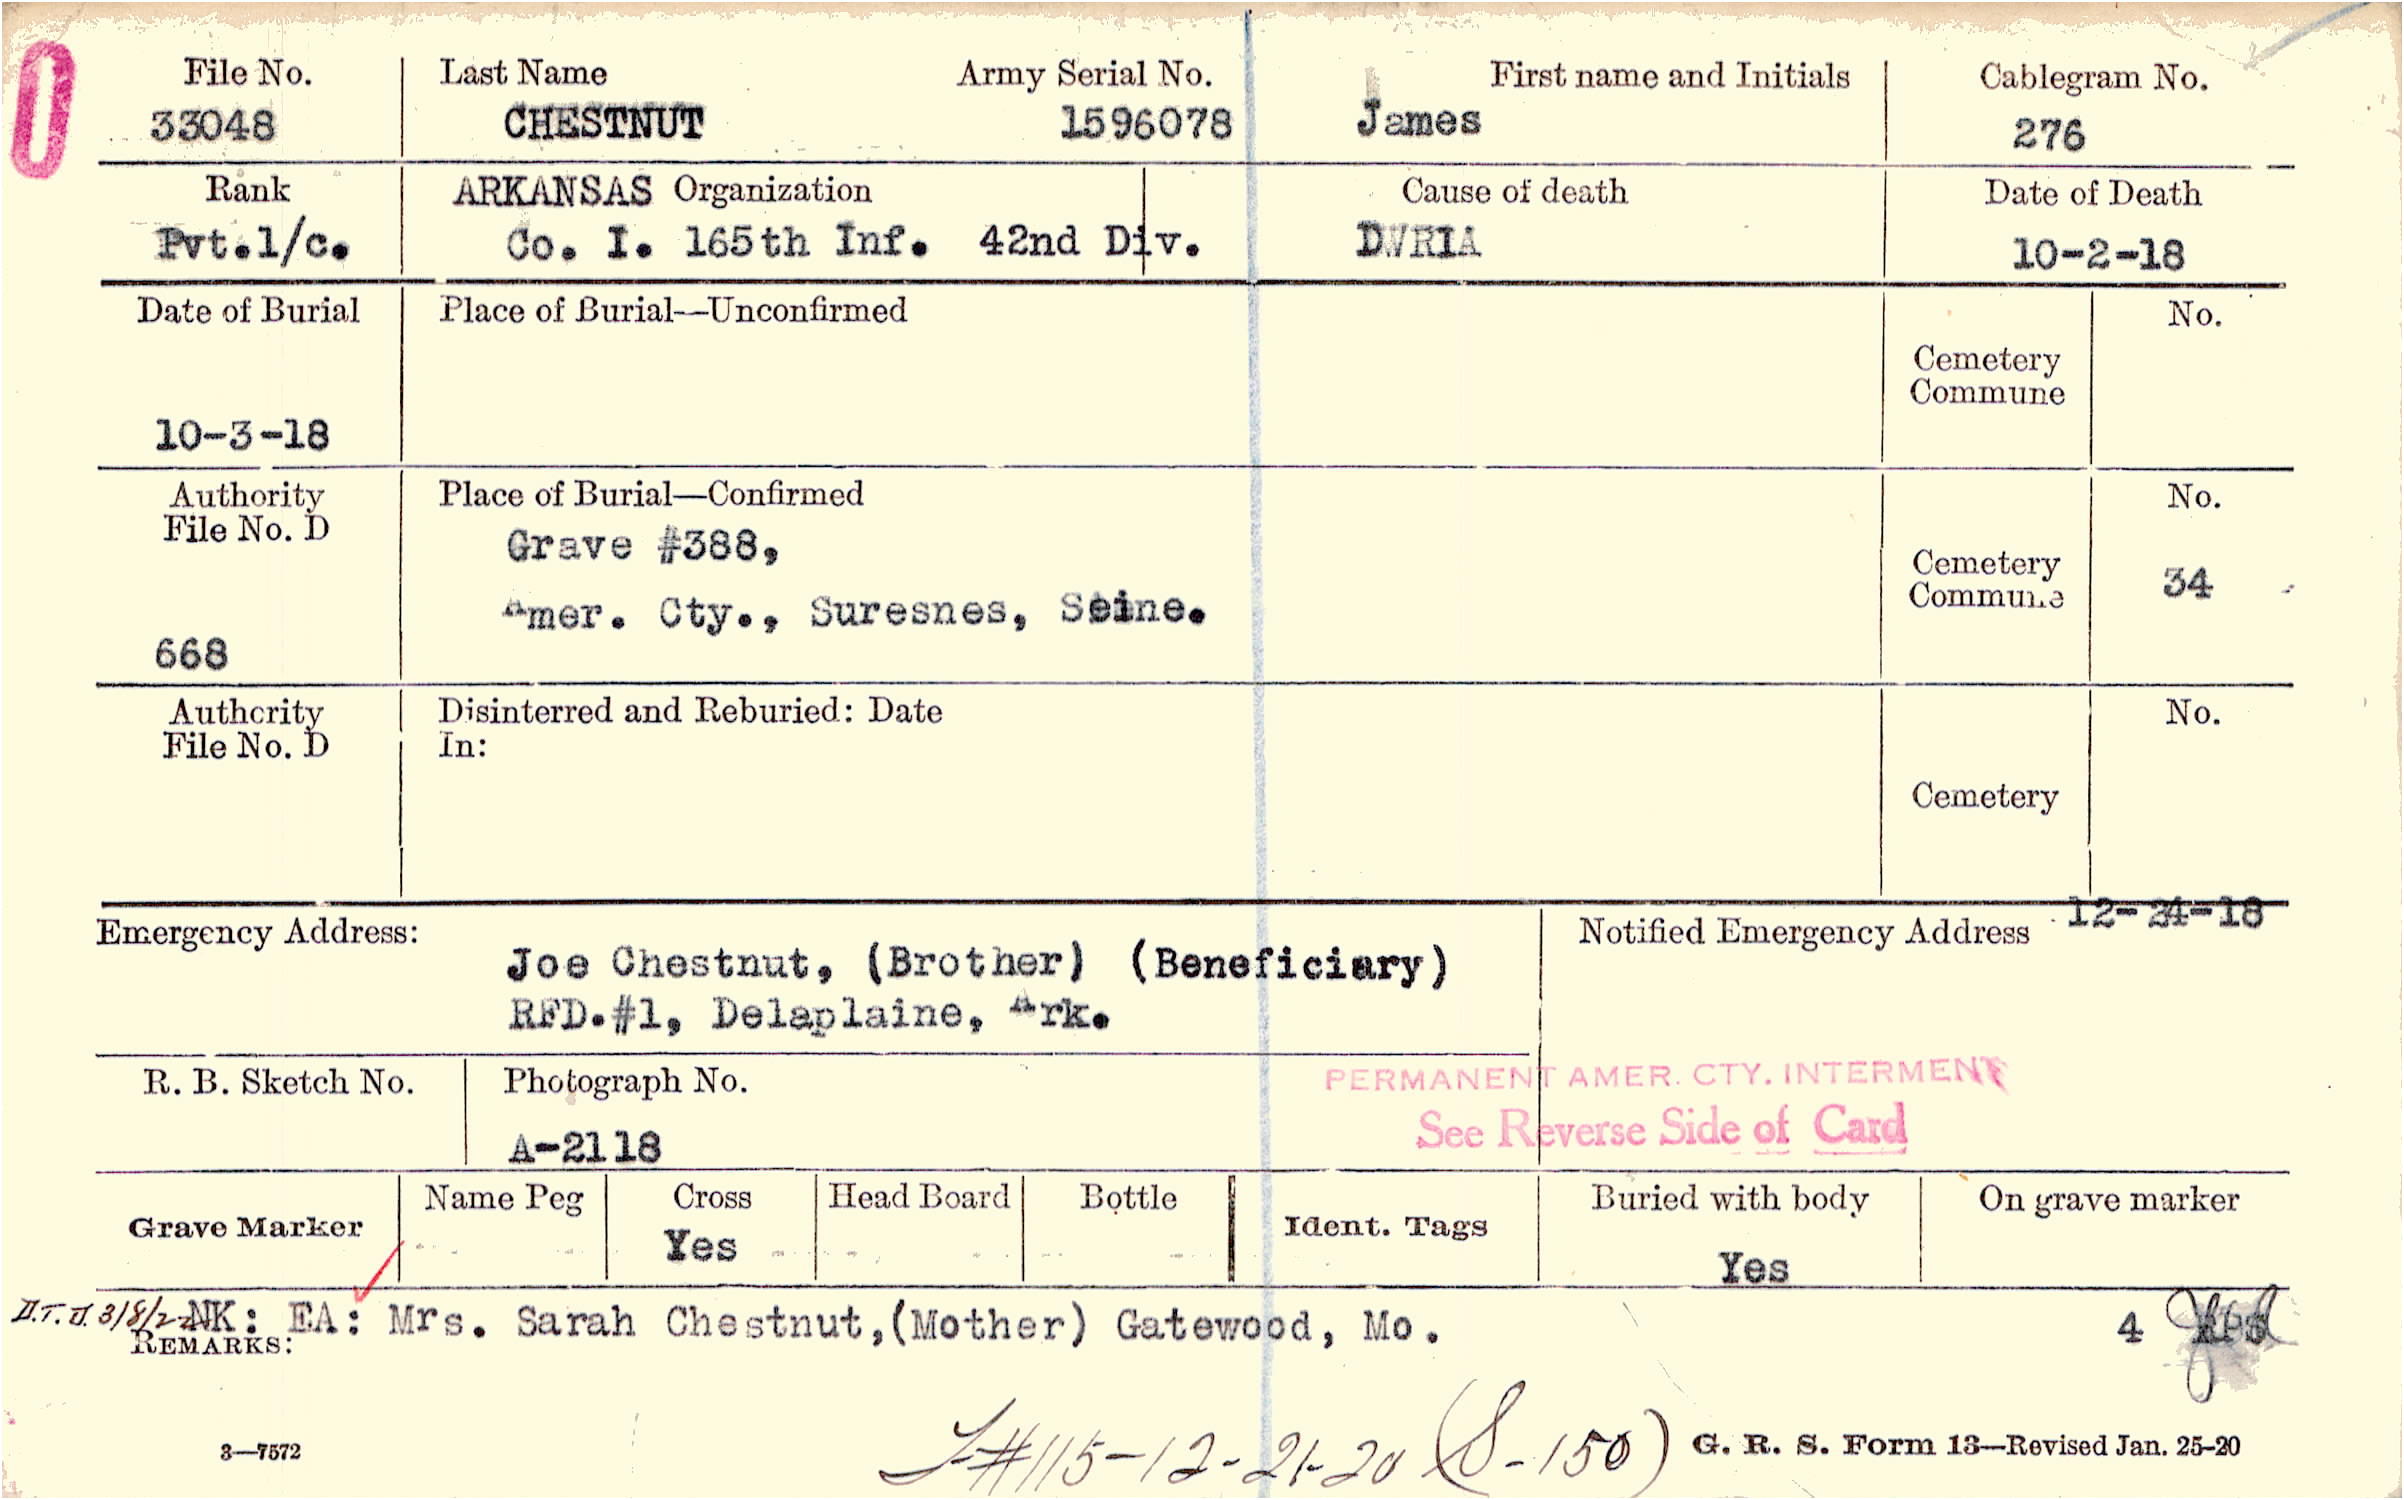 File No. Last Name Army Serial No. First name and Initials Cablegram No.
33048 CHESTNUT 1596078 James 276
Rank ARKANSAS Organization Cause of death Date of Death
Pvt.1/c. Co. I. 165th Inf. 42nd Div. DWRIA 10-2-18
Date of Burial Place of Burial—Unconfirmed No.
Cemetery
Commune
10-3-18
Authority Place of Burial—Confirmed No.
File No. D
Grave #388,
Cemetery
Commune 34
Amer. Cty., Suresnes, Seine.
668
Authority Disinterred and Reburied: Date No.
File No. D In:
Cemetery
12-24-18
Emergency Address: Notified Emergency Address
Joe Chestnut, (Brother) (Beneficiary)
RFD.#1, Delaplaine, Ark.
R. B. Sketch No. Photograph No. PERMANENT AMER. CTY. INTERMENT
See Reverse Side of Card
A-2118
Grave Marker Name Peg Cross Head Board Bottle Ident. Tags Buried with body On grave marker
Yes Yes
3/8/22 NK: EA: Mrs. Sarah Chestnut,(Mother) Gatewood, Mo. 4
REMARKS:
#115-12-21-20 (S-150)
3—7572 G. R. S. Form 13—Revised Jan. 25-20